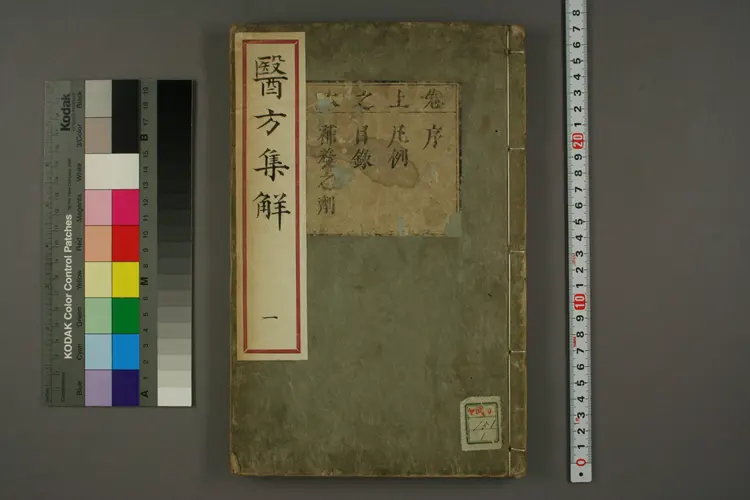 醫方集解
一
卷上之
序
凡例
目錄
補養之劑
Kodak
KODAK Color Control Patches
Blue
Cyan
Green
Yellow
Red
Magenta
White
3/Color
Black
A 1 2 3 4 5 6 M 8 9 10 11 12 13 14 15 B 17 18 19
0 1 2 3 4 5 6 7 8 9 10 1 2 3 4 5 6 7 8 9 20 1 2 3 4 5 6 7 8